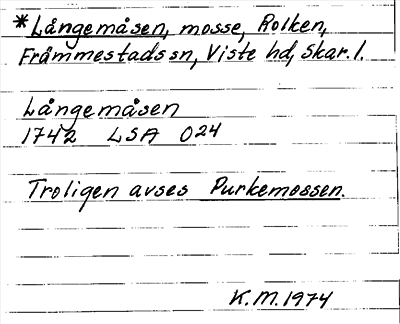 *Långemåsen, mosse, Rolken,
Främmestads sn, Viste hd, Skar. l.
Långemåsen
1742 LSA O24
Troligen avses Purkemossen.
K.M. 1974